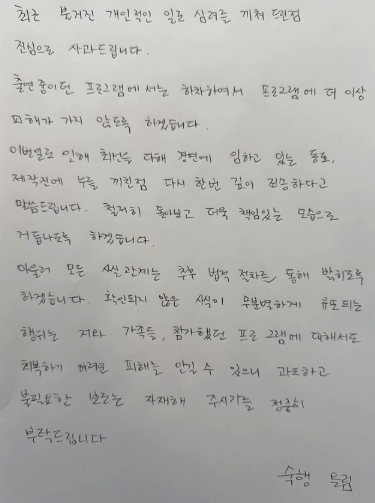 최근 불거진 개인적인 일로 심려를 끼쳐 드린점
진심으로 사과드립니다.
출연중이던 프로그램에서는 하차하여서 프로그램에 더 이상
피해가 가지 않도록 하겠습니다.
이번일로 인해 최선을 다해 경연에 임하고 있는 동료,
제작진에 누를 끼친점 다시 한번 깊이 죄송하다고
말씀드립니다. 철저히 돌아보고 더욱 책임있는 모습으로
거듭나도록 하겠습니다.
아울러 모든 사실관계는 추후 법적 절차를 통해 밝히도록
하겠습니다. 확인되지 않은 사실이 무분별하게 유포되는
행위는 저와 가족들, 참가했던 프로그램에 대해서도
회복하기 어려운 피해를 안길 수 있으니 과도하고
불필요한 보도는 자제해 주시기를 정중히
부탁드립니다
숙행 올림